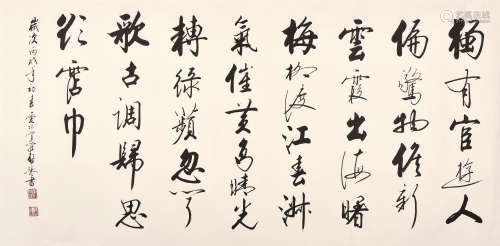 獨有宦遊人
偏驚物候新
雲霞出海曙
梅柳渡江春淑
氣催黃鳥晴光
轉綠蘋忽聞
歌古調歸思
欲霑巾
歲次丙戌年初春
書